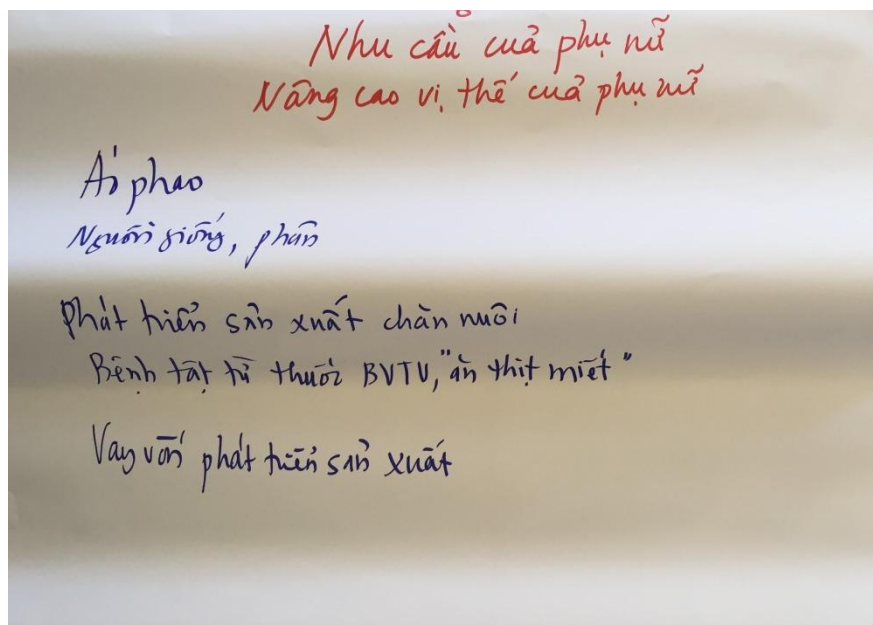 Nhu cầu của phụ nữ
Nâng cao vị thế của phụ nữ
Áo phao
Nguồn giống, phân
Phát triển sản xuất chăn nuôi
Bệnh tật từ thuốc BVTV, "ăn thịt miết"
Vay vốn phát triển sản xuất